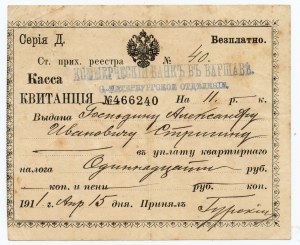 Серія Д. Безплатно.
Ст. прих. реестра № 40.
КОММЕРЧЕСКІЙ БАНКЪ ВЪ ВАРШАВѢ.
С.-ПЕТЕРБУРГСКОЕ ОТДѢЛЕНІЕ.
Касса
КВИТАНЦІЯ №466240 На 11 р. к.
Выдана Господину Александру
Ивановичу
въ уплату квартирнаго
налога Одиннадцать руб.
коп. и пени руб. коп.
1911 г. Апр 15 дня. Принялъ